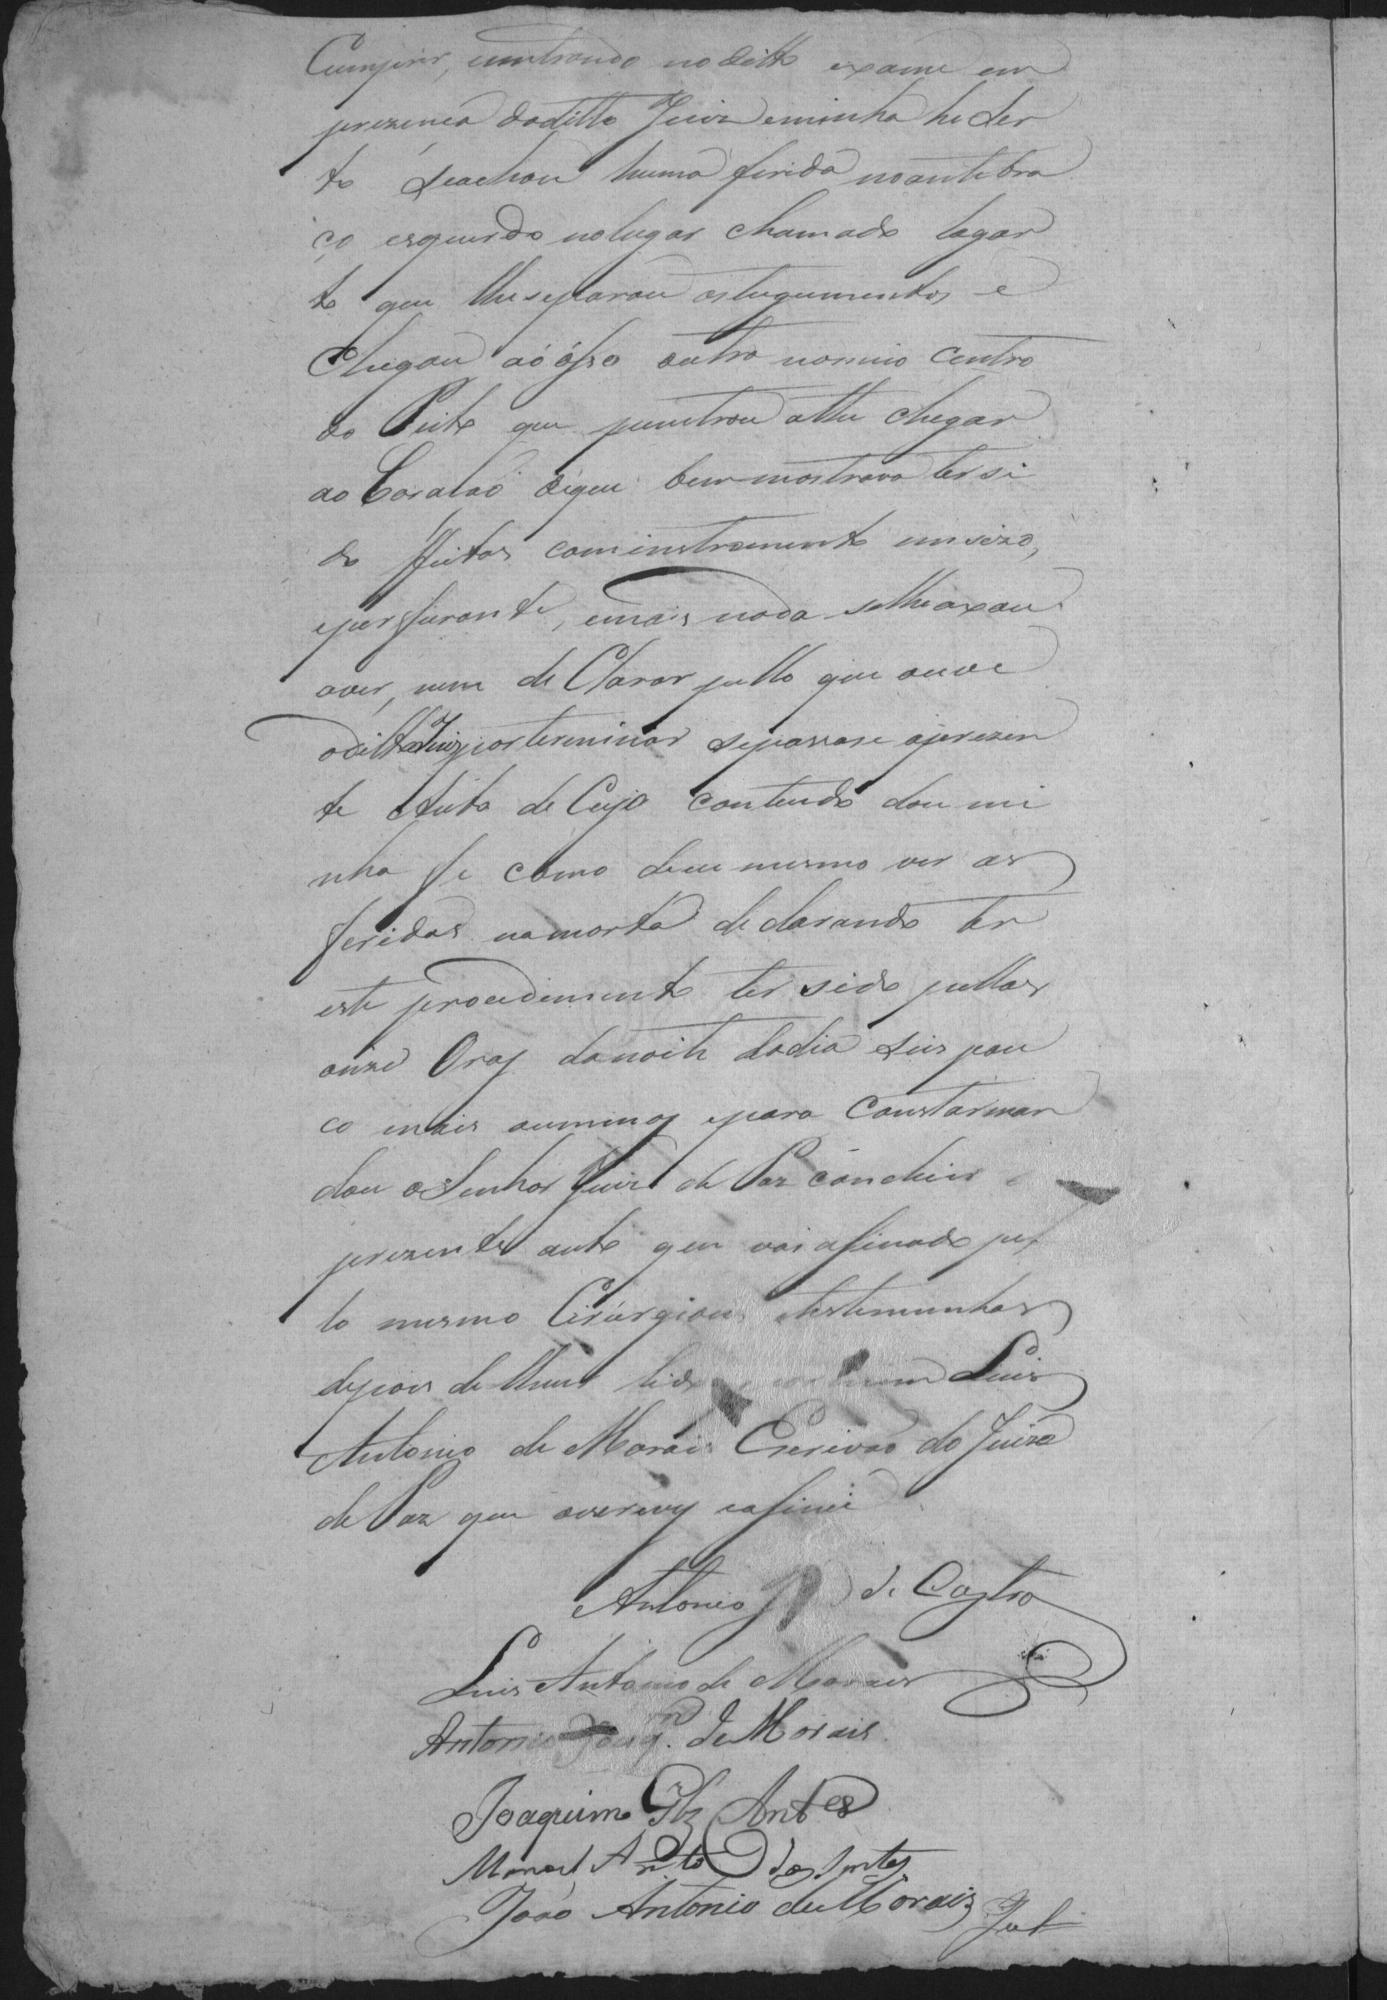 Cumprir, entrando no ditto exame em
prezenca do ditto Juiz e minha he cer
to se achou huma ferida no antibra
ço esquerdo no lugar chamado lagar
to que lhe separou os tegumentos e
chegou aó ósso outra no meio centro
do Peito que penetrou athe chegar
ao Corasaõ e que bem mostrava ter si
do feitas com instromento incizo,
eperfurante, emais nada selhe axou
aver, nem de Clarar pello que ouve
oditto Juiz por terminar sepassase aprezen
te Auto de Cujo contendo dou mi
nha fe como deu mesmo ver as
feridas namorta declarando ter
este procedimento ter sido pellas
onze Oras danoite dodia seis pou
co mais oumenos epara Constar man
dou oSenhor Juiz de Paz
prezente auto que vai asinado pe
lo mesmo Cirurgiao testemunhas
depois de lhes lido Luis
Antonio de Morais Escrivaõ do Juizo
de Paz que oescrevy easinei
Antonio de Castro
Luis Antonio de Moraes
Antonio Joaqm. de Morais
Joaquim Glz Antes
Manoel Anto dos Santos
Joao Antonio de Morais